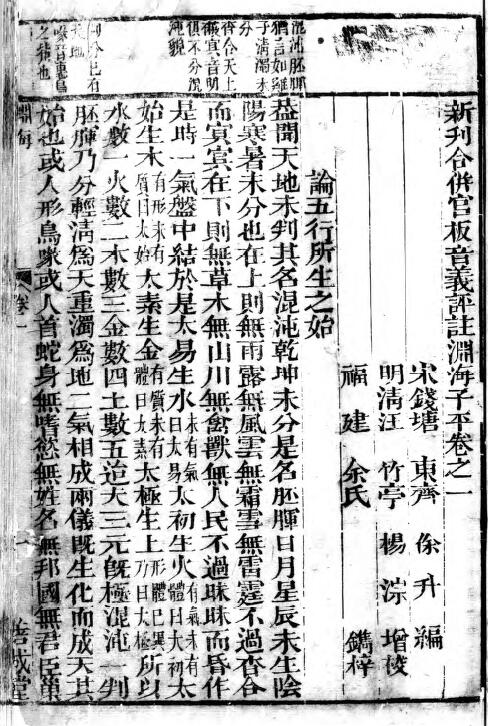 混沌胚腪
猶言如雞
子清濁未
分
杳合天上
俱不分混
沌貌
天地
喙音惠鳥
新刊合併官板音義評註淵海子平卷之一
宋錢塘 東齊 徐升 編
明清江 竹亭 楊淙 增校
福建 余氏 鐫梓
論五行所生之始
葢聞天地未判其名混沌乾坤未分是名胚腪日月星辰未生陰
陽寒暑未分也在上則無雨露無風雲無霜雪無雷霆不過杳合
而冥冥在下則無草木無山川無禽獸無人民不過昧昧而昏作
是時一氣盤中結於是太易生水未有氣曰太易太初生火有氣未有體曰太初太
始生木有形未有質曰太始太素生金有質未有體曰太素太極生土形體已具乃曰太極所以
水數一火數二木數三金數四土數五迨夫三元旣極混沌一判
胚腪乃分輕淸爲天重濁爲地二氣相成兩儀旣生化而成天其
始也或人形鳥喙或人首蛇身無嗜慾無姓名無邦國無君臣巢
淵海 卷一 一 善成堂